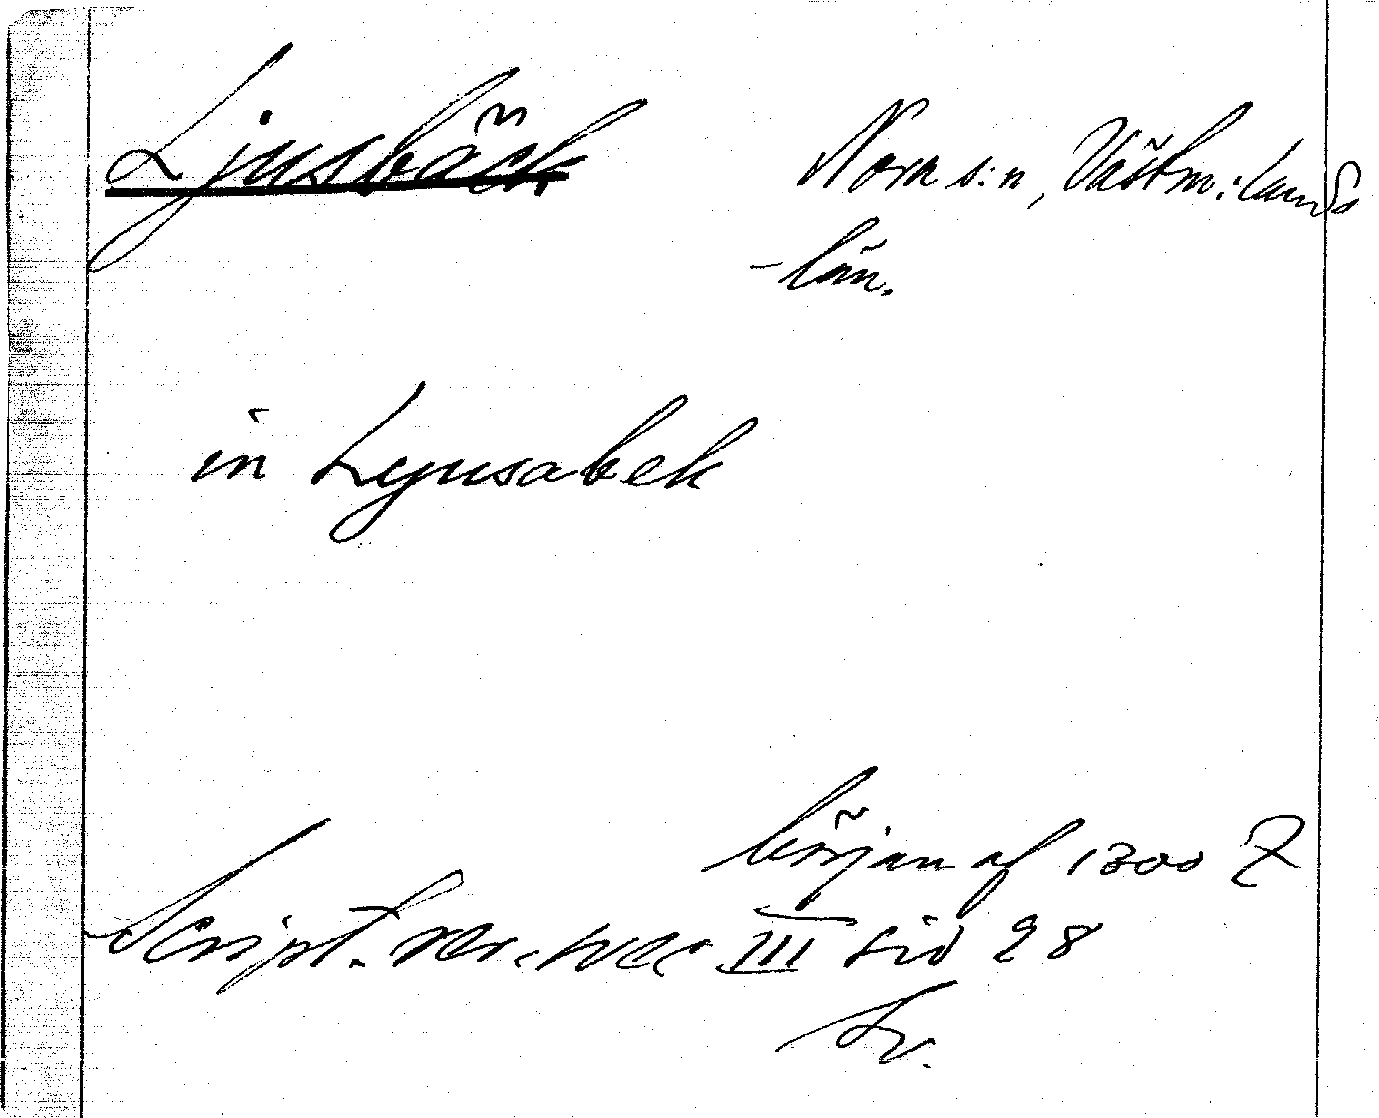 Ljusbäck
Nora s:n, Västm:lands
-län.
in Lyusabek
början af 1300 t
Script. rer. svec III sid 98
Sv.